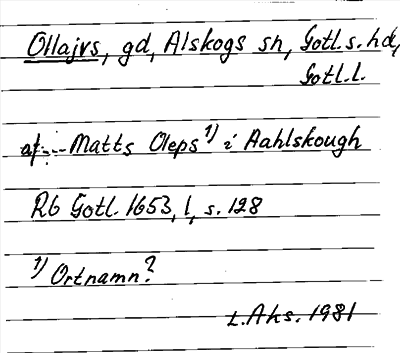 Ollajvs, gd, Alskogs sn, Gotl. s. hd,
Gotl. l.
af --- Matts Oleps 1) i Aahlskough
Rb Gotl. 1653, l, s. 128
1) Ortnamn?
L. Ahs. 1981